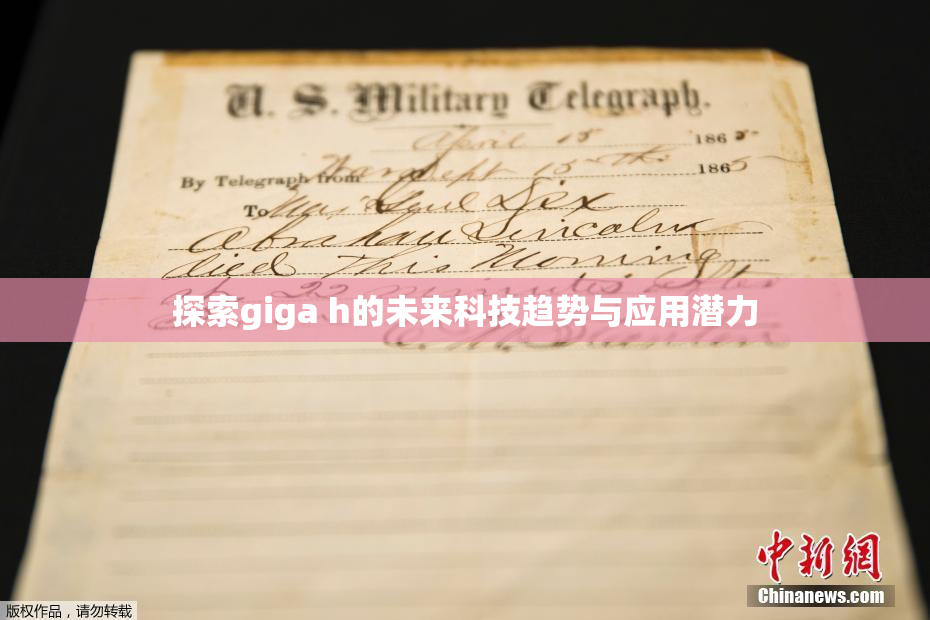 U. S. Military Telegraph.
April 15 1865
By Telegraph from War Dept 15th 1865
To Maj Genl Dix
Abraham Lincoln
died This Morning
at 22 minutes after
探索giga h的未来科技趋势与应用潜力
中新网
Chinanews.com
版权作品，请勿转载